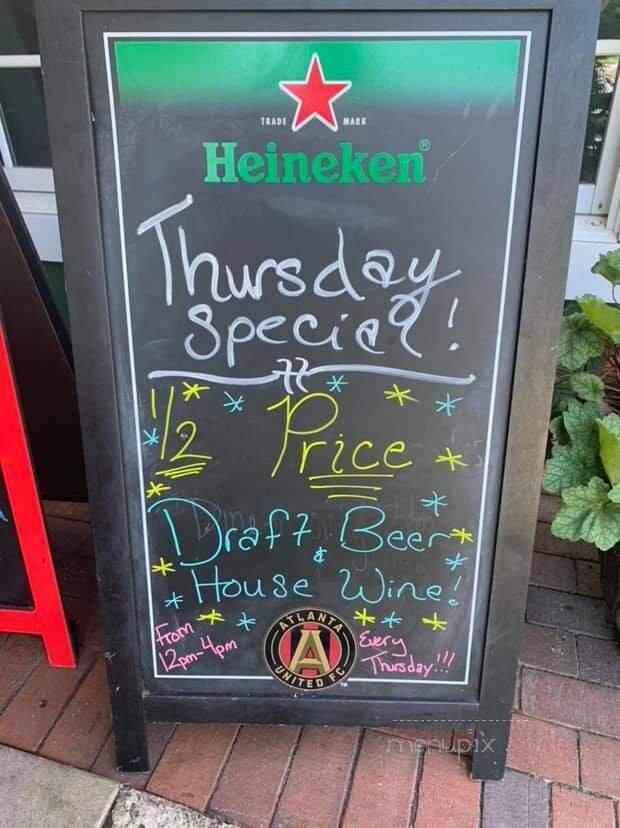 TRADE MARK
Heineken®
Thursday
Special!
1/2 Price
Draft Beer
&
House Wine!
From
12pm-4pm
ATLANTA
A
UNITED FC
™
Every
Thursday!!!
menupix